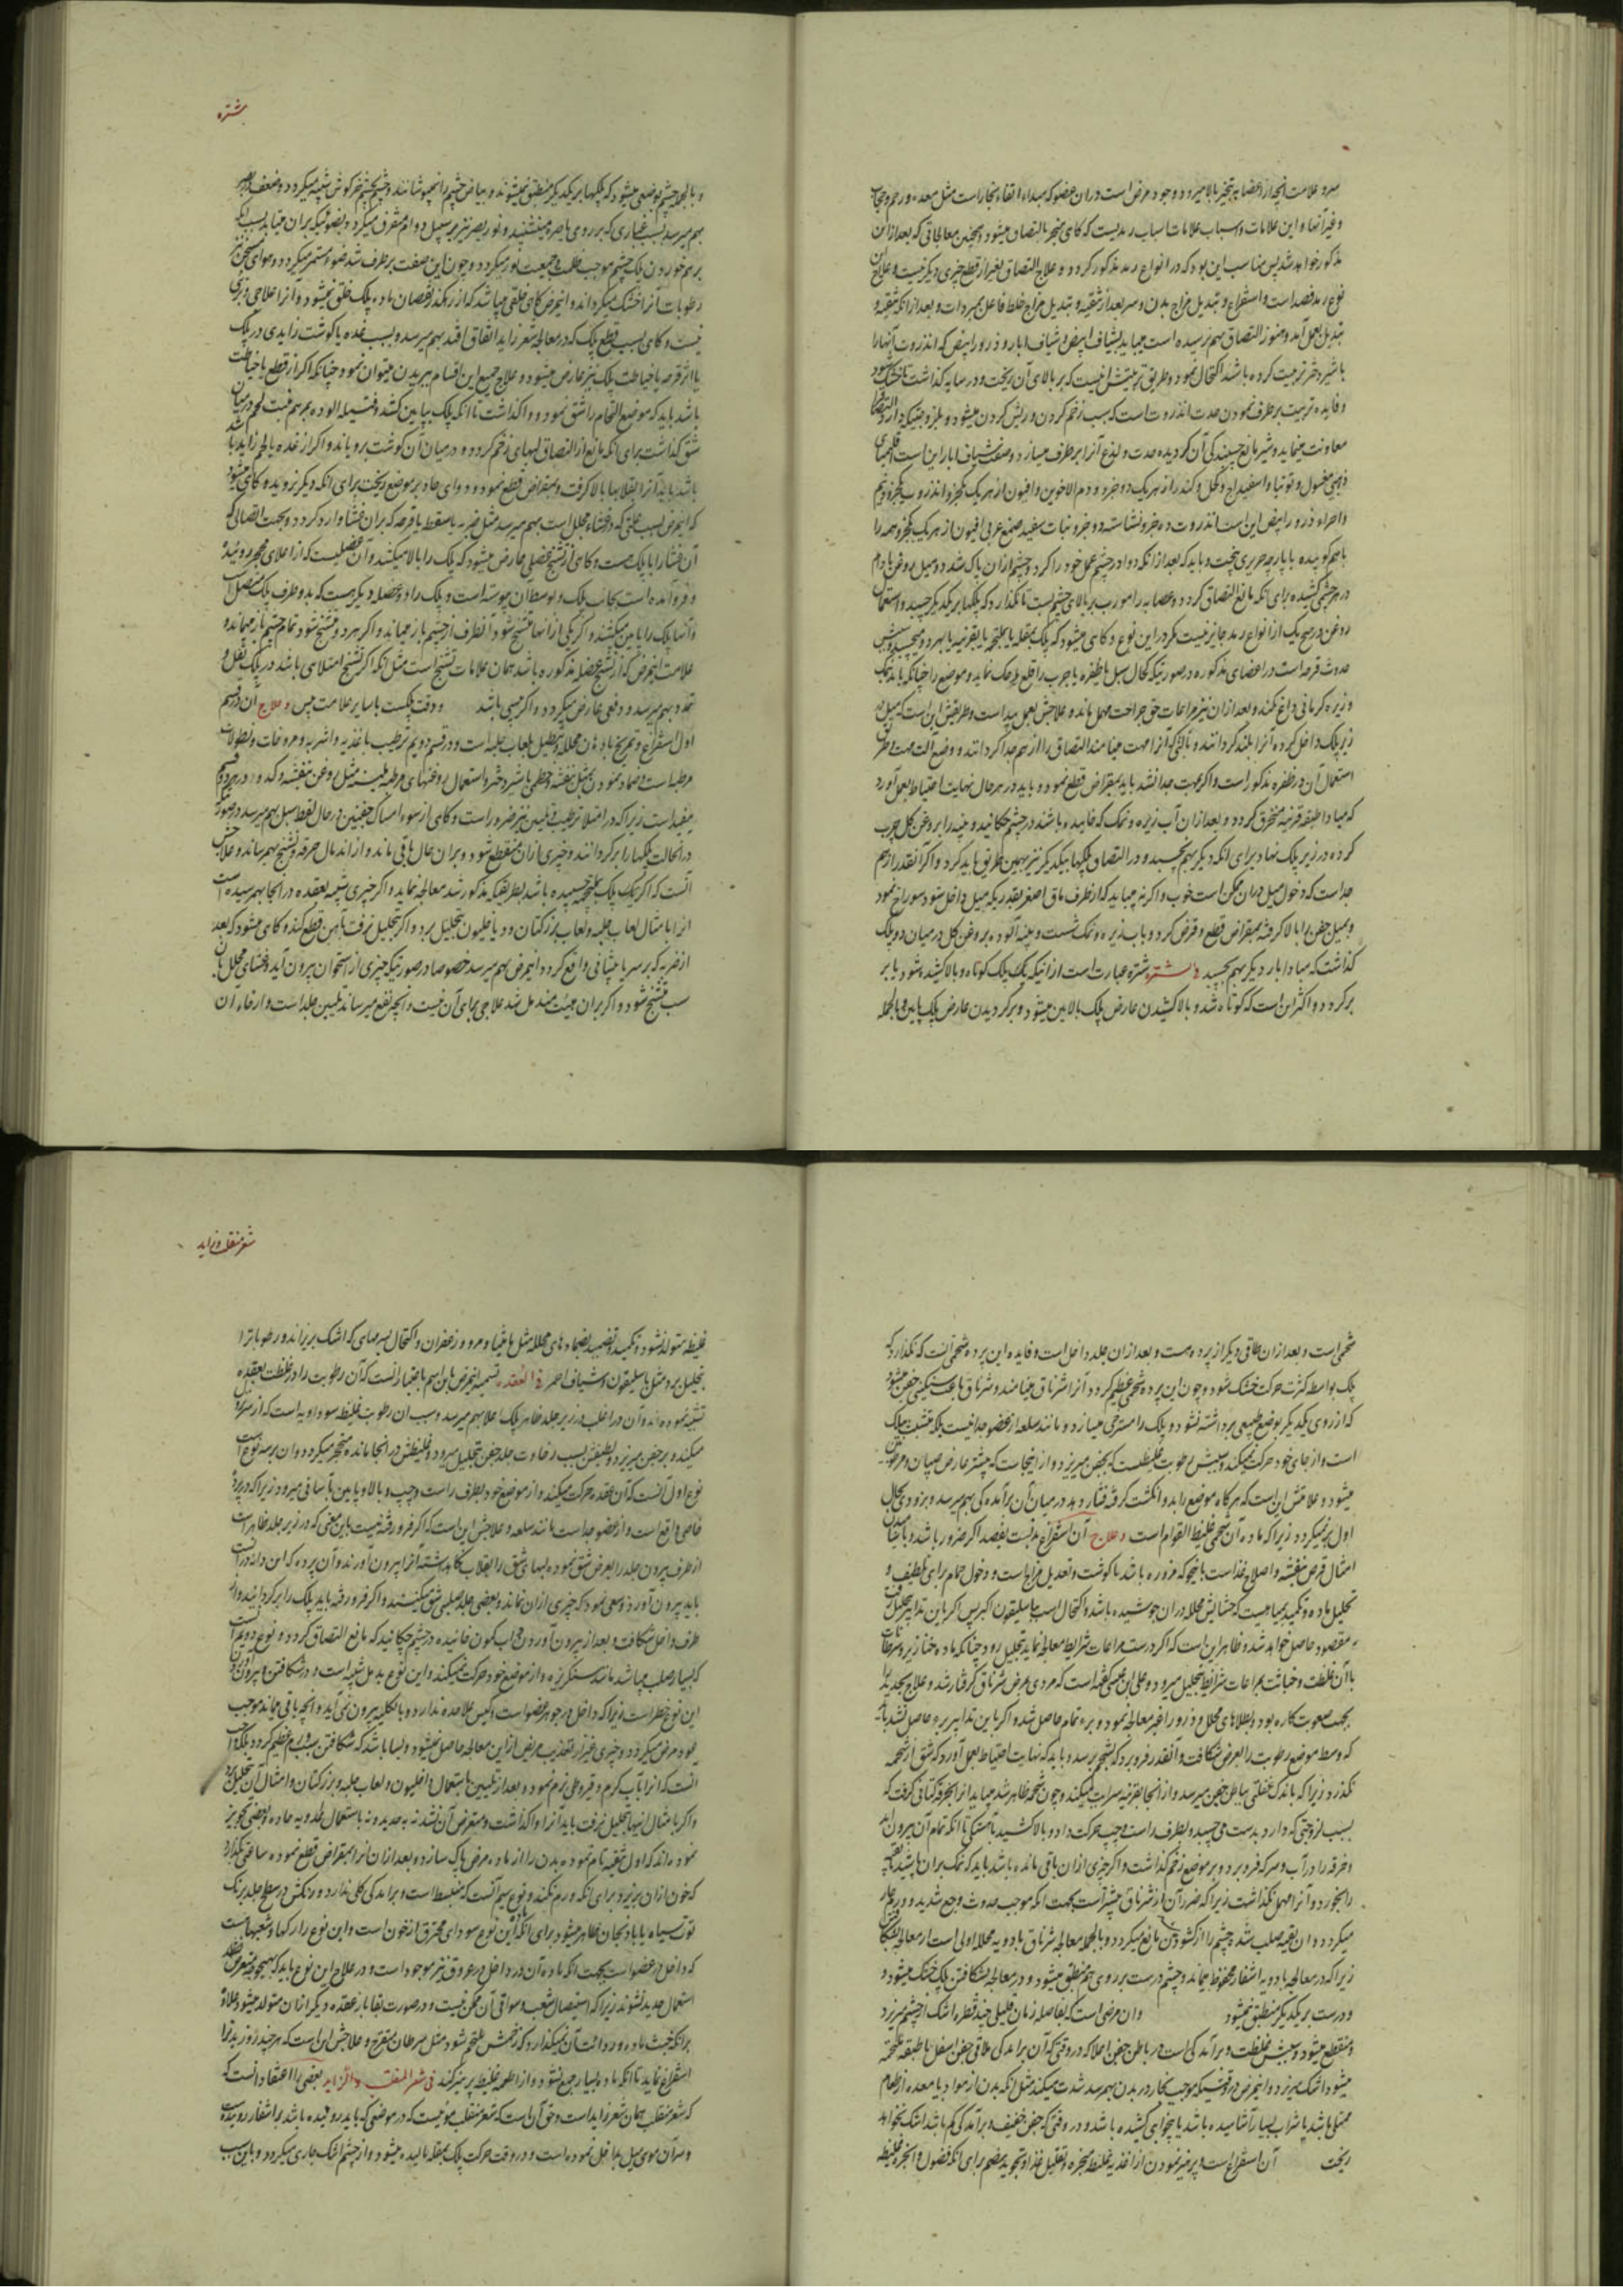 میرود علامت آنچه از اعضا به تبخیر بالا میرود وجود مرض است در ان عضو که مبداء ارتقاء بخار است مثل معده و رحم و حجاب
و غیر آنها و این علامات و اسباب علامات اسباب رمدیست که کاهی منجر بالتصاق میشود و همچنین معالجاتی که بعد از این
مذکور خواهد شد پس مناسب این بود که در انواع رمد مذکور کردد و علاج التصاق بغیر از قطع چیزی دیکر نیست و علاج این
نوع رمد فصد است و استفراغ و تبدیل مزاج بدن و سر بعد از تنقیه و تبدیل مزاج خلط فاعل بمبردات و بعد از انکه تنقیه و
تبدیل بعمل آمد و هنوز التصاق بهم نرسیده است میباید بشیاف ابیض و شیاف ابار و ذرور ابیض که انذروت آنها را
با شیر دختر تربیت کرده باشند اکتحال نمود و طریق تربیتش اینست که بر بالای آن ریخت و در سایه کذاشت تا خشک شود
و فایده تربیت برطرف نمودن حدت انذروت است که سبب زخم کردن و ریش کردن میشود و بلزوجتیکه دارد التصاق را
معاونت مینماید و شیر مانع چسبندکی آن کردیده حدت و لذع آنرا برطرف میسازد و صفت شیاف ابار این است اقلیمیای
ذهبی مغسول و توتیا و اسفیداج و کحل و کندر از هر یک دو جزو و دم الاخوین و افیون از هر یک یکجزو انذروت یکجزو نیم
و اجزاء ذرور ابیض این است انذروت ده جزو نشاسته دو جزو نبات سفید صمغ عربی افیون از هر یک یکجزو همه را
باهم کوبیده با پارچه حریری پخت و باید که بعد از انکه دوا در چشم عمل خود را کرد و چشم از ان پاک شد دو میل روغن بادام
در هر چشمی کشیده برای انکه مانع التصاق کردد و عصابه را مورب بر بالای چشم بست تا نکذارد که پلکها بر یکدیکر چسبد و استعمال
روغن در هیچ یک از انواع رمد جایز نیست مکر در این نوع و کاهی میشود که پلک بمقله یا بملتحمه یا بقرنیه یا بهر دو میچسبد و سببش
حدوث قرحه است در اعضای مذکوره در صورتیکه کحال سبل یا ظفره یا جرب را قطع یا حک نماید و موضع را چنانکه باید نمک
و زیره کرمانی داغ نکند و بعد از ان نیز مراعات حق جراحت مهمل ماند و علاجش بعمل ید است و طریقش این است که میل در
زیر پلک داخل کرده آنرا بلند کردانند و بآلتی که آنرا مهت مینامند التصاق را از هم جدا کردانند و وضع آلت مهت و طریق
استعمال آن در ظفره مذکور است و اکر بمهت جدا نشد باید بمقراض قطع نمود و باید در هر حال نهایت احتیاط بعمل آورد
که مبادا طبقه قرنیه منخرق کردد و بعد از ان آب زیره و نمک که خاییده باشند در چشم چکانید و پنبه را بروغن کل چرب
کرده در زیر پلک نهاد برای انکه دیکر بهم نچسبد و در التصاق پلکها بیکدیکر نیز بهمین طریق باید کرد و اکر آنقدر از هم
جداست که دخول میل در ان ممکن است خوب و اکر نه میباید که از طرف ماق اصغر بقدریکه میل داخل شود سوراخ نمود
و بمیل جفن را بالا کرفته بمقراض قطع و قرض کرد و بآب زیره و نمک شست و پنبه آلوده بروغن کل در میان دو پلک
کذاشت که مبادا بار دیکر بهم چسبد فی الشتره شتره عبارت است از انیکه یک پلک کوتاه و بالا کشیده شود یا بر
برکردد و اکثر این است که کوتاه شد و بالا کشیدن عارض پلک بالایین میشود و برکردیدن عارض پلک پایین و بالجمله
شتره
و بالجمله چشم بوضعی میشود که پلکها بر یکدیکر منطبق نمیشوند و بیاض چشم را نمیپوشانند و چشم بچشم خرکوش شبیه میکردد و ضعف باصر
بهم میرسد بسبب غباری که بر روی باصره مینشیند و نور بصر نیز بر سبیل دوام متفرق میکردد و بضوئیکه بران میتابد بسبب انکه
برهم خوردن پلک چشم موجب ظلمت و جمعیت نور میکردد و چون این صفت برطرف شد ضوء مستمر میکردد و هوای سخن
رطوبات آنرا خشک میکرداند و اینمرض کاهی خلقی میباشد که از رهکذر نقصان ماده پلک خلق نمیشود و آنرا علاجی پذیری
نیست و کاهی بسبب قطع پلک که در معالجه شعر زاید اتفاق افتد بهم میرسد و بسبب غده یا کوشت زایدی در پلک
یا اثر قرحه یا خیاطت پلک نیز عارض میشود و علاج جمیع این اقسام ببریدن میتوان نمود چنانکه اکر از قطع یا خیاطت
باشد باید که موضع التحام را شق نموده و واکذاشت تا انکه پلک بپایین کشد و فتیله آلوده بمرهم منبت لحم در میان
شق کذاشت برای انکه مانع از التصاق لبهای زخم کردد و در میان آن کوشت برویاند و اکر از غده یا لحم زاید با شد
باشد باید آنرا بقلابها بالا کرفت و بمقراض قطع نمود و دوای حاد بر موضع ریخت برای انکه دیکر نروید و کاهی میشود
که اینمرض بسبب علتی که در غشاء مجلل است بهم میرسد مثل ضربه یا سقطه یا قرحه که بران غشا وارد کردد و بجهت اتصالی که
آن غشا را با پلک هست و کاهی از تشنج عضلی عارض میشود که پلک را بالا میکشد و آن عضلیست که از اعلای محجر روئیده
و فرو آمده است بجانب پلک و بوسط آن پیوسته است و پلک را دو عضله دیکر هست که بدو طرف پلک متصل اند
و آنها پلک را پایین میکشند و اکر یکی از انها متشنج شود آنطرف از چشم باز میماند و اکر هر دو متشنج شود تمام چشم باز میماند و
علامت اینمرض که از تشنج عضله مذکوره باشد همان علامات تشنج است مثل انکه اکر تشنج امتلائی باشد در پلک ثقل و
تمدد بهم میرسد و دفعی عارض میکردد و اکر یبسی باشد و دقت پلکست با سایر علامت یبس و علاج آن در قسم
اول استفراغ و تمریخ بادهان محلله و تنطیل بلعاب حلبه است و در قسم دویم ترطیب باغذیه و اشربه و مروخات و نطولات
مرطبه است و ضماد نمودن بمثل بنفشه و خطمی با شیر دختر و استعمال روغنهای مرطبه ملینه مثل روغن بنفشه و کدو و در هر دو قسم
مفید است زیرا که در امتلا ترطیب و تلیین نیز ضرور است و کاهی از سوء امساک جفنین در حال لقط سبل بهم میرسد در صورتی
در انحالت پلکها را برکردانند و چیزی از ان منقطع شود و بر ان حال باقی ماند و از اندمال حرقه و تشنج بهم رساند و علاجش
آنست که اکر یک پلک بملتحمه چسپیده باشد بطریقیکه مذکور شد معالجه نماید و اکر چیزی شبیه بعقده در انجا بهم رسیده است
آنرا بامثال لعاب حلبه و لعاب بزر کتان و دیاخلیون تحلیل برد و اکر بتحلیل نرفت بآهن قطع کند و کاهی میشود که بعد
از ضربه که بر سر یا پیشانی واقع کردد اینمرض بهم میرسد خصوصا در صورتیکه چیزی از استخوان بیرون آید و غشای مجلل بآن
سبب متشنج شود و اکر بران هیئت مندمل شد علاجی برای آن نیست و انچه نفع میرساند تلیین جلد است و ارخاء ان
شحمی است و بعد از ان طاقی دیکر از پرده هست و بعد از ان جلد داخل است و فایده این پرده شحمی آنست که نکذارد که
پلک بواسطه کثرت حرکت خشک شود و چون این پرده شحمی عظیم کردد آنرا شرناق مینامند و شرناق باعث سنکینی جفن میشود
که از روی یکدیکر بوضع طبیعی برداشته نشود و پلک را مسترخی میسازد و مانند سلعه از عضو جدا نیست بلکه متشبث بپلک
است و از جای خود حرکت نمیکند و سببش رطوبت غلیظست که بجفن میریزد و از اینجاست که بیشتر عارض صبیان و مرطوبین
میشود و علامتش این است که هرکاه موضع زاید را دو انکشت کرفته فشار دهد در میان آن برآمدکی بهم میرسد و بزودی بحال
اول برنمیکردد زیرا که ماده آن شحمی غلیظ القوام است و علاج آن استفراغ بدنست بفصد اکر ضرور باشد و باحتمال
امثال قرص بنفشه و اصلاح غذاست بانچه که مزوره باشد با کوشت و تعدیل مزاجهاست و دخول حمام برای تلطیف و
تحلیل ماده و تکمید بمیاهیست که حشایش محلله در ان جوشیده باشد و اکتحال است بباسلیقون اکبر پس اکر باین تدابیر تحلیل رفت
مقصود حاصل خواهد شد و ظاهر این است که اکر درست مراعات شرایط معالجه نماید بتحلیل رود چنانکه ماده خنازیر و سرطان
با آن غلظت و خباثت بمراعات شرایط بتحلیل میرود و علی ابن عیسی کفته است که مردی بمرض شرناق کرفتار شد و علاج بحدید را
بجهت صعوبت کاره بود و بطلاهای محلل و ذرور اغبر معالجه نمود و برء تمام حاصل شد و اکر باین تدابیر برء حاصل نشد باید
که وسط موضع رطوبت را بعرض شکافت و آنقدر فرو برد که بشحم رسد و باید که نهایت احتیاط بعمل آورد که شق از شحمه
نکذرد زیرا که باندک غفلتی بباطن جفن میرسد و از انجا بقرنیه سرایت میکند و چون شحمه ظاهر شد میباید انرا بخرقه کتانی کرفت که
بسبب لزوجتی که دارد بدست می چسبد و بطرف راست و چپ حرکت داد و بالا کشید بآهستکی تا انکه تمام آن بیرون آید
و خرقه را در آب و سرکه فرو برد و بر موضع زخم کذاشت و اکر چیزی از ان باقی مانده باشد باید که نمک بران پاشید تا بقیه
را بخورد و آنرا مهمل نکذاشت زیرا که ضرر آن از شرناق بیشتر است بجهت انکه موجب حدوث وجع شدید و ورم حار
میکردد و ان بقیه صلب شده چشم را از کشودن مانع میکردد و بالجمله معالجه شرناق بادویه محلله اولی است از معالجه بشکافتن
زیرا که در معالجه بادویه اشفار محفوظ میماند و چشم درست بر روی هم منطبق میشود و در معالجه بشکافتن پلک خشک میشود و
و درست بر یکدیکر منطبق نمیشود وان مرضی است که بفاصله زمان قلیلی چند قطره اشک از چشم میریزد
و منقطع میشود و سببش غلظت و برآمدکی است در باطن جفن اعلا که در وقتی که آن برآمدکی ملاقی جفن اسفل یا طبقه ملتحمه
میشود اشک میریزد و اینمرض در وقتیکه موجب بخار در بدن بهم رسد شدت میکند مثل انکه بدن از مواد یا معده از طعام
ممتلی باشد یا شراب بسیار آشامیده باشد یا بیخوابی کشیده باشد و در وقتی که جفن خفیف و برآمدکی کم باشد اشک نخواهد
ریخت آن استفراغست و پرهیز نمودن از اغذیه غلیظه مبخره و تقلیل غذا و تجوید هضم برای انکه فضول و ابخره غلیظه
شعر منقلب و زاید
غلیظه متولد نشود و تکمید و تضمید بضمادهای محلله مثل مامیثا و مر و زعفران و اکتحال بسرمهای که اشک بریزاند و رطوباترا
بتحلیل برد مثل باسلیقون و شیاف احمر فی العقده تسمیه اینمرض باین اسم باعتبار انست که آن رطوبت را در غلظت بعقده
تشبیه نموده اند و آن در اغلب در زیر جلد ظاهر پلک اعلا بهم میرسد و سبب ان رطوبت غلیظه سوداویه است که از سر نزول
میکند و بر جفن میریزد و لطیفش بسبب رخاوت جلد جفن بتحلیل میرود و غلیظش در انجا مانده متحجر میکردد و ان بر سه نوع است
نوع اول آنست که آن عقده حرکت میکند و از موضع خود بطرف راست و چپ و بالا و پایین بآسانی میرود زیرا که در پرده
خاصی واقع است و از عضو جداست مانند سلعه و علاجش این است که اکر فرو رفته نیست باین معنی که در زیر جلد ظاهر است
از طرف بیرون جلد را بعرض شق نموده لبهای شق را بقلاب نکاهداشته آنرا بیرون آورند و آن پرده که این دانه در ان است
باید بیرون آورد و سعی نمود که چیزی از ان نماند و بعضی جلد را صلیبی شق میکنند و اکر فرو رفته باید پلک را برکردانید و از
طرف داخل شکافت و بعد از بیرون آوردن آب کمون خاییده در چشم چکانید که مانع التصاق کردد و نوع دویم آنست
که بسیار صلب میباشد مانند سنکریزه و از موضع خود حرکت نمیکند و این نوع بدمل شبیه است و در شکافتن و بیرون آوردن
این نوع خطر است زیرا که داخل در جوهر عضو است و کیس علاحده ندارد و بالکلیه بیرون نمی آید و انچه باقی میماند موجب
عود مرض میکردد و چیزی غیر از تعذیب مریض از این معالجه حاصل نمیشود و بسا باشد که شکافتن سبب ورم عظیم کردد بلکه واجب
آنست که انرا بآب کرم و قیروطی نرم نمود و بعد از تلیین باستعمال دیاخلیون و لعاب حلبه و بزر کتان و امثال آن تحلیل برد
و اکر بامثال اینها بتحلیل نرفت باید آنرا واکذاشت و متعرض آن نشد نه بحدید و نه باستعمال ادویه حاده و بعضی تجویز
نموده اند که اول تنقیه تام نموده بدن را از ماده مرض پاک سازد و بعد از ان انرا بمقراض قطع نموده ساعتی بکذارد
که خون از ان بریزد برای انکه ورم نکند و نوع سیم آنست که منبسط است و برآمدکی کلی ندارد و رنکش در سطح جلد برنک
توت سیاه یا بادنجان ظاهر میشود برای انکه این نوع سودای محترق از خون است و این نوع را رکها و شعبهاست
که داخل در عضو است بجهت انکه ماده آن در داخل در عروق نیز موجود است و در علاج این نوع باید که بهیچوجه متعرض قطع
استعمال حدید نشوند زیرا که استیصال شعب و سواقی آن ممکن نیست و در صورت بقا باز عقده دیکر از ان متولد میشود علاوه
بر انکه خبث ماده و ردائت آن نمیکذارد که زخمش ملتحم شود مثل سرطان متقرح و علاجش این است که هر چند روز بدنرا
استفراغ نماید تا انکه ماده بسیار جمع نشود و از اطعمه غلیظه پرهیز کند فی شعر المنقلب والزاید بعضی را اعتقاد انست که
که شعر منقلب همان شعر زاید است و حق آن است که شعر منقلب موئیست که در موضعی که باید روئیده باشد بر اشفار روئیده است
و سر آن موی میل بداخل نموده است و در وقت حرکت پلک بمقله مالیده میشود و از چشم اشک جاری میکردد و باین سبب